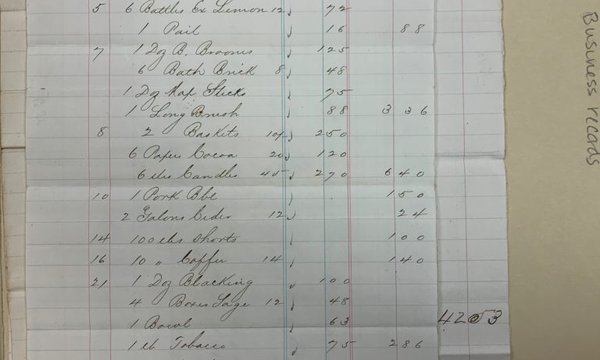 5 6 Bottles Ex Lemon 12 72
1 Pail 16 88
7 1 Dz B. Brooms 125
6 Bath Brick 8 48
1 Dz Sticks 75
1 Long Brush 88 3 36
8 2 Baskets 250
6 Papers Cocoa 20 120
6 lbs Candles 45 270 6 40
10 1 Pork Bbl 1 50
2 Galons Cider 12 24
14 100 lbs Shorts 1 00
16 10 " Coffee 14 1 40
21 1 Dz Blacking 100
4 Boxes Sage 12 48
1 Bowl 63
1 lb Tobacco 75 2 86
Business records